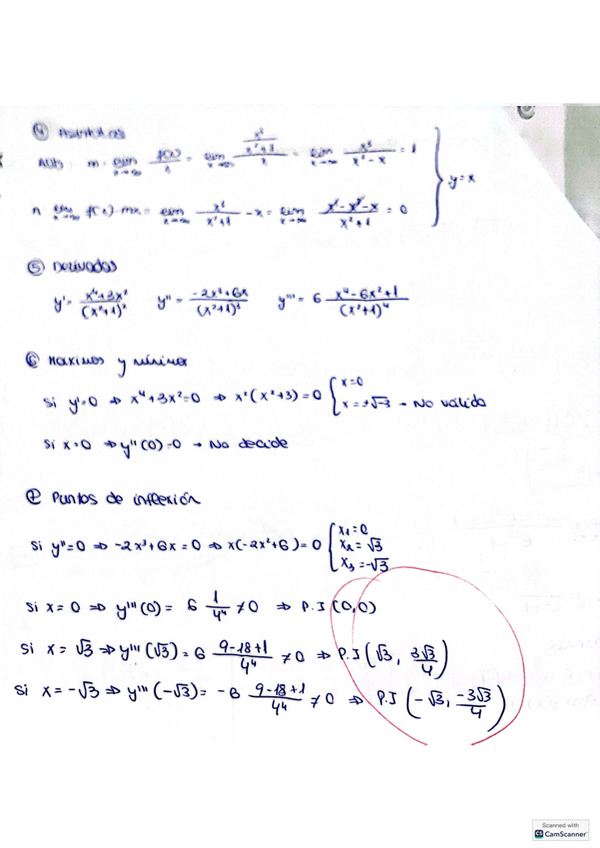 ④ Asíntotas
AOb: m = lim x→∞ f(x)/x = lim x→∞ (x³/(x²+1))/x = lim x→∞ x³/(x³-x) = 1
n lim x→∞ f(x)-mx = lim x→∞ x³/(x²+1) - x = lim x→∞ (x³-x³-x)/(x²+1) = 0 } y=x
⑤ Derivadas
y' = (x⁴+3x²)/(x²+1)² y'' = (-2x³+6x)/(x²+1)³ y''' = 6 (x⁴-6x²+1)/(x²+1)⁴
⑥ Máximos y mínimos
Si y'=0 ⇒ x⁴+3x²=0 ⇒ x²(x²+3)=0 { x=0
x=±√-3 → No válido
Si x=0 ⇒ y''(0)=0 → No decide
⑦ Puntos de inflexión
Si y''=0 ⇒ -2x³+6x=0 ⇒ x(-2x²+6)=0 { x₁=0
x₂=√3
x₃=-√3
Si x=0 ⇒ y'''(0)= 6 1/4⁴ ≠0 ⇒ P.I (0,0)
Si x=√3 ⇒ y'''(√3)= 6 (9-18+1)/4⁴ ≠0 ⇒ P.I (√3, 3√3/4)
Si x=-√3 ⇒ y'''(-√3)= -6 (9-18+1)/4⁴ ≠0 ⇒ P.I (-√3, -3√3/4)
Scanned with
CS CamScanner